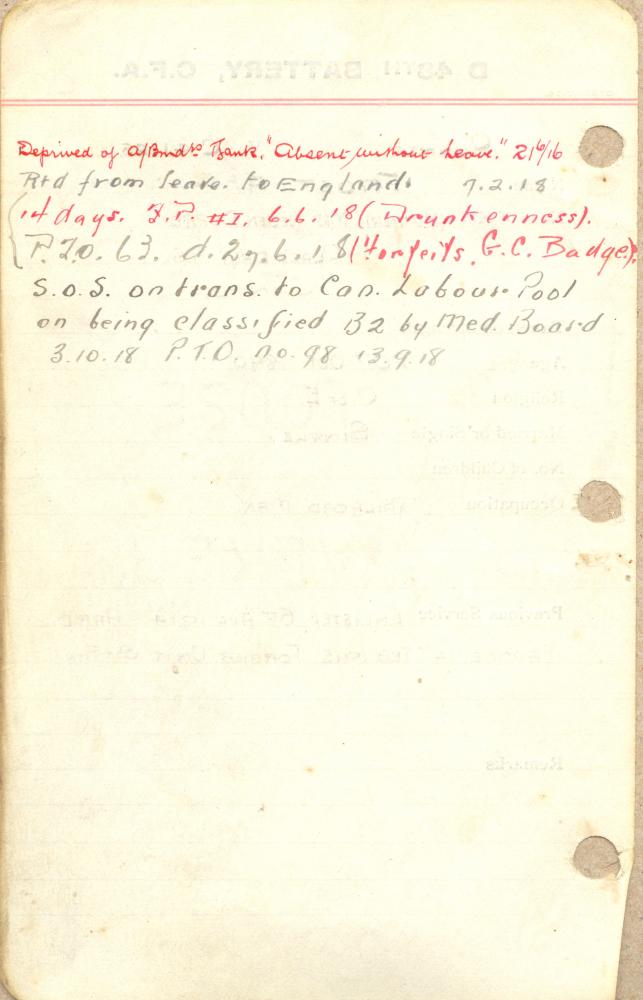 Deprived of A/Bmdrs Rank. "Absent without Leave." 21/6/16
Rtd from leave. to England. 7.2.18
14 days. F.P. #1. 6.6.18 (Drunkenness).
P.T.O. 63. d. 27.6.18 (Forfeits G.C. Badge).
S.O.S. on trans. to Can. Labour Pool
on being classified B2 by Med. Board
3.10.18 P.T.O. no. 98 13.9.18